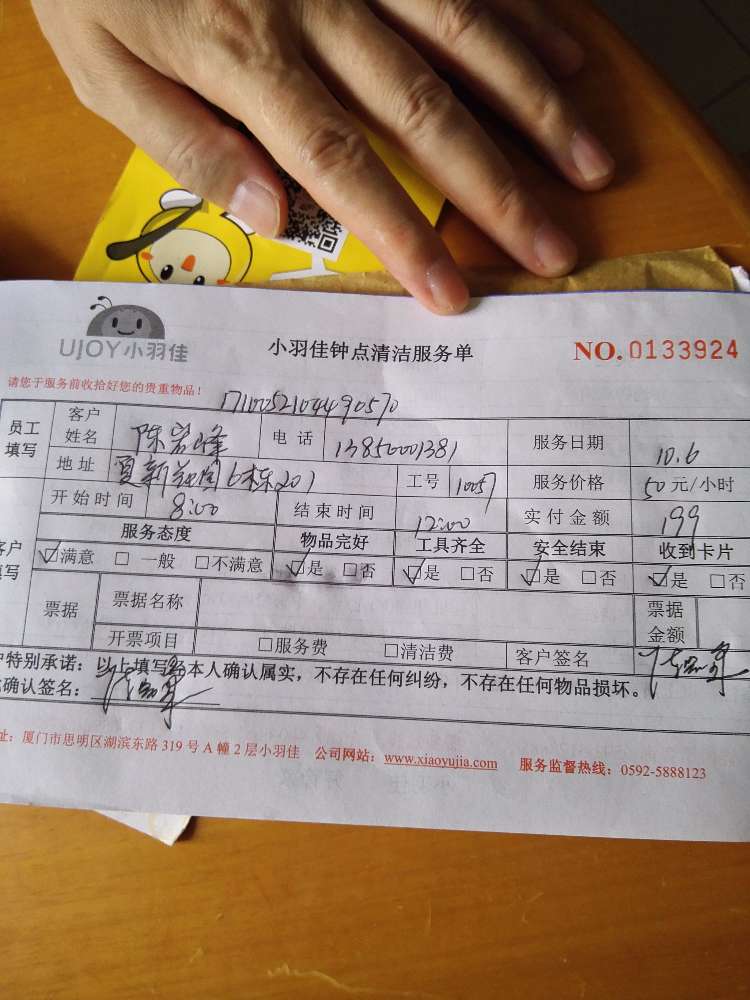 UJOY小羽佳
小羽佳钟点清洁服务单
NO. 0133924
请您于服务前收拾好您的贵重物品！
1710052104490570
员工填写 客户姓名 陈岩峰 电话 13850001381 服务日期 10.6
地址 夏新 6栋201 工号 10057 服务价格 50元/小时
开始时间 8:00 结束时间 12:00 实付金额 199
服务态度 物品完好 工具齐全 安全结束 收到卡片
☑满意 □一般 □不满意 ☑是 □否 ☑是 □否 ☑是 □否 ☑是 □否
票据 票据名称 票据金额
开票项目 □服务费 □清洁费 客户签名
特别承诺：以上填写经本人确认属实，不存在任何纠纷，不存在任何物品损坏。
确认签名：
址：厦门市思明区湖滨东路 319 号 A 幢 2 层小羽佳 公司网站：www.xiaoyujia.com 服务监督热线：0592-5888123